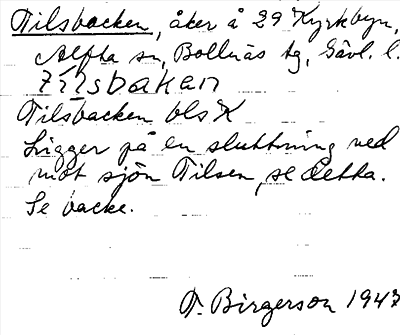 Tilsbacken, åker å 29 Kyrkbyn,
Alfta sn, Bollnäs tg, Gävl. l.
tilsbaken
Tilsbacken bls K
Ligger på en sluttning ned
mot sjön Tilsen, se detta.
Se backe.
T. Birgerson 1947